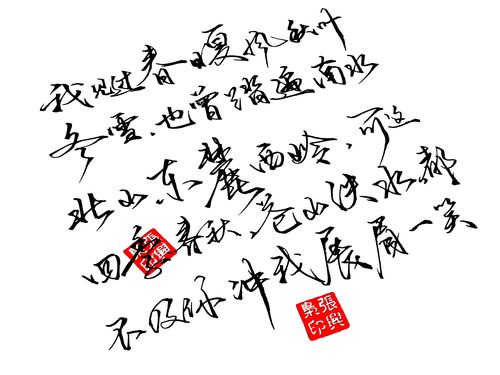 我见过春日夏风秋叶
冬雪,也曾踏遍南水
北山东麓西岭,可这
四季春秋,苍山泱水都
不及你冲我展眉一笑
張興
印
張興
印